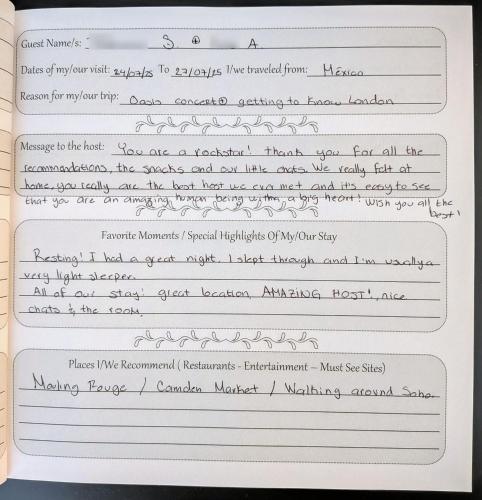 Guest Name/s: S. ⊕ A.
Dates of my/our visit: 24/07/25 To 27/07/25 I/we traveled from: México
Reason for my/our trip: Oasis concert ⊕ getting to know London
Message to the host: You are a rockstar! thank you for all the
recommendations, the snacks and our little chats. We really felt at
home, you really are the best host we ever met and it's easy to see
that you are an amazing human being with a big heart! Wish you all the
best!
Favorite Moments / Special Highlights Of My/Our Stay
Resting! I had a great night, I slept through and I'm usually a
very light sleeper.
All of our stay! great location, AMAZING HOST!, nice
chats & the room.
Places I/We Recommend ( Restaurants - Entertainment – Must See Sites)
Mouling Rouge / Camden Market / Walking around Soho